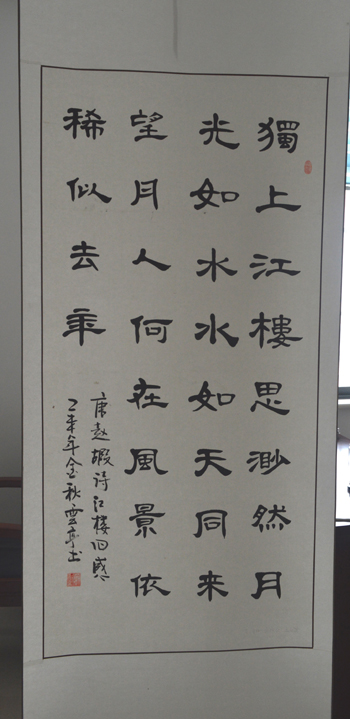 獨上江樓思渺然月
光如水水如天同來
望月人何在風景依
稀似去秊
唐赵嘏诗江楼旧感
乙未年金秋雲亭书